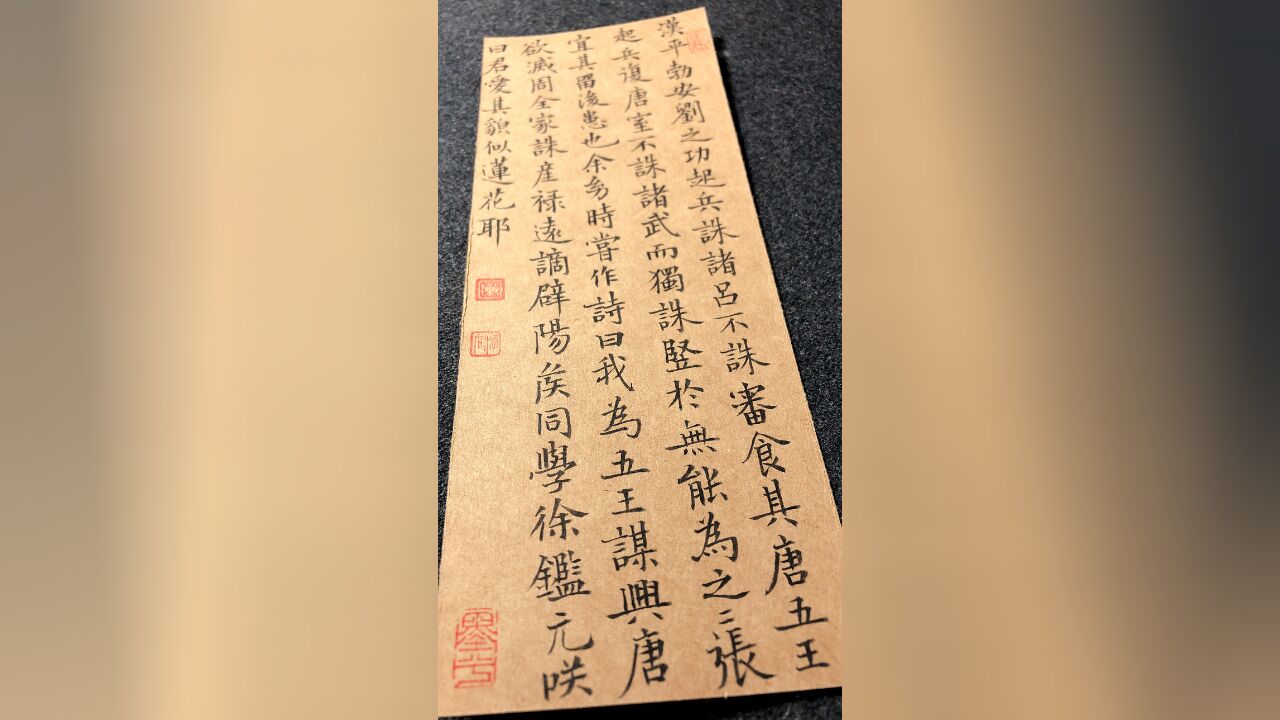 漢平勃安劉之功起兵誅諸呂不誅審食其唐五王
起兵復唐室不誅諸武而獨誅竪於無能為之二張
宜其留後患也余幼時嘗作詩曰我為五王謀興唐
欲滅周全家誅産禄遠謫辟陽侯同學徐鑑元咲
曰君愛其貌似蓮花耶